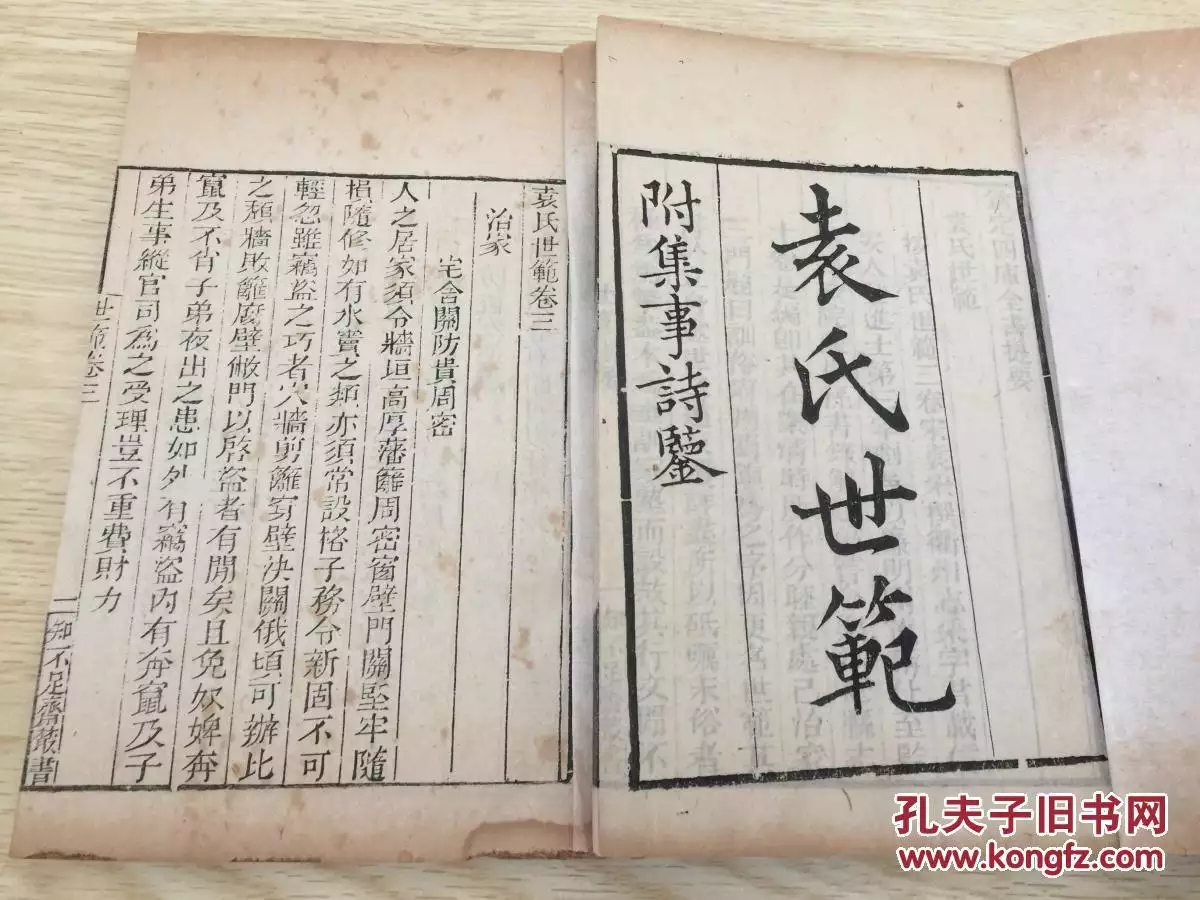 袁氏世範
附集事詩鑒
袁氏世範卷三
治家
宅舍關防貴周密
人之居家須令牆垣高厚藩籬周密窗壁門關堅牢隨
損隨修如有水竇之類亦須常設格子務令新固不可
輕忽雖竊盜之巧者穴牆剪籬穿壁決關俄頃可辦比
之頹牆敗籬腐壁敝門以啓盜者有閒矣且免奴婢奔
竄及不肖子弟夜出之患如外有竊盜內有奔竄及子
弟生事縱官司爲之受理豈不重費財力
世範卷三
一
知不足齋叢書
孔夫子旧书网
www.kongfz.com